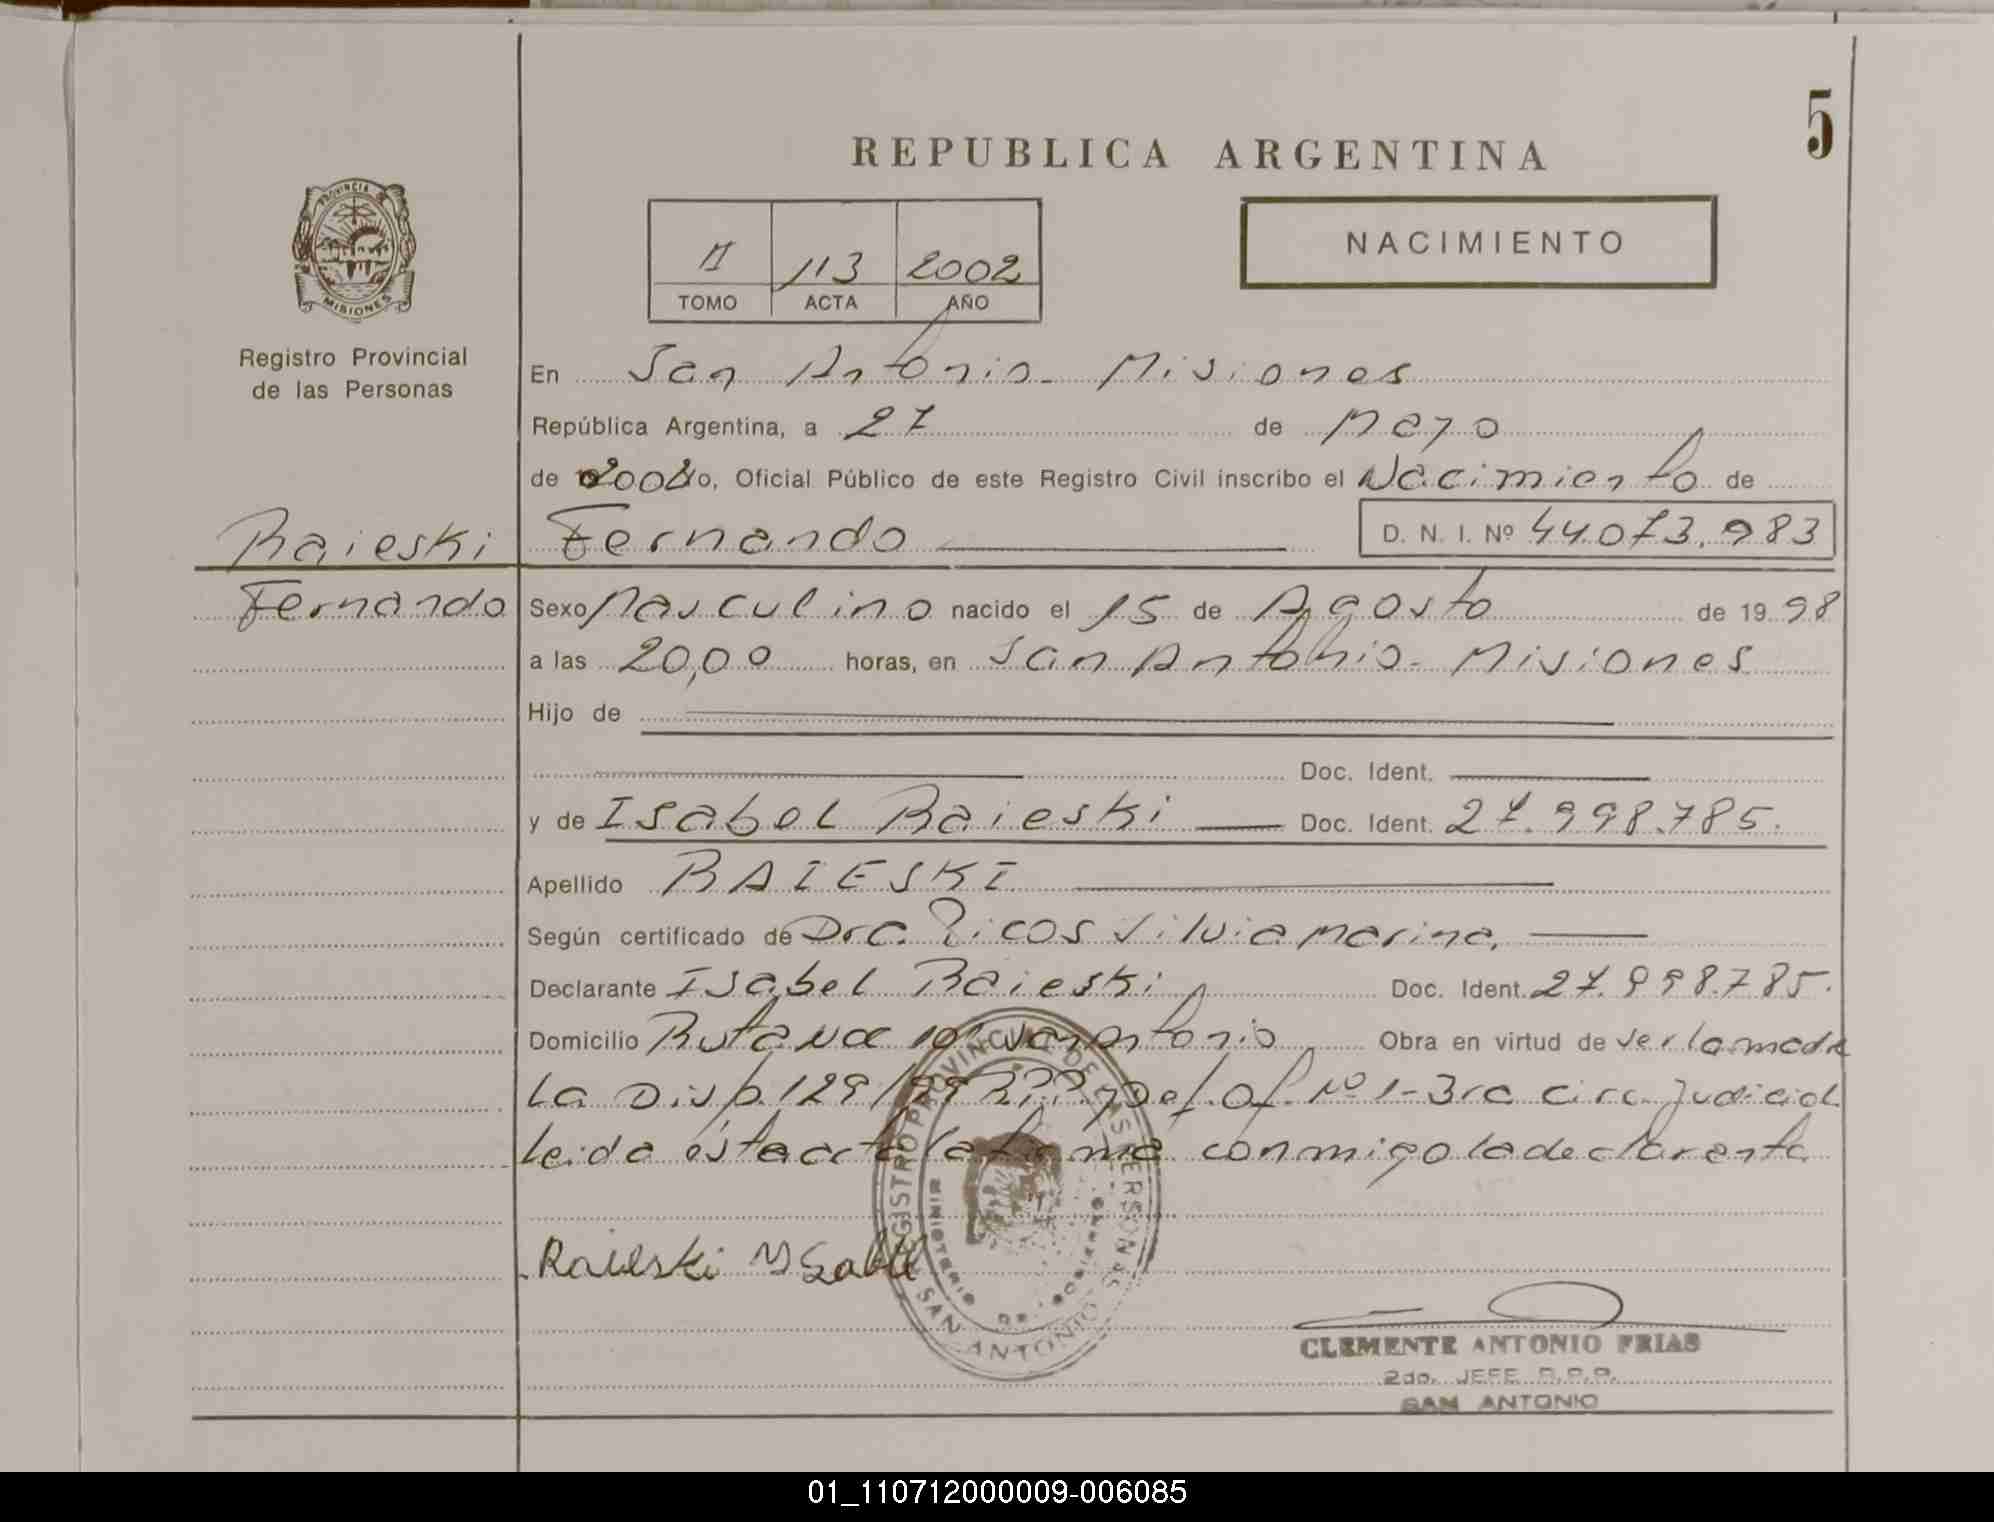 5
REPUBLICA ARGENTINA
PROVINCIA DE
MISIONES
Registro Provincial
de las Personas
II 113 2002
TOMO ACTA AÑO
NACIMIENTO
En San Antonio - Misiones
República Argentina, a 27 de Mayo
de 2002 Yo, Oficial Público de este Registro Civil inscribo el Nacimiento de
Raieski Fernando D. N. I. Nº 44.073.983
Fernando Sexo Masculino nacido el 15 de Agosto de 19 98
a las 20,00 horas, en San Antonio - Misiones
Hijo de
Doc. Ident.
y de Isabel Raieski Doc. Ident. 27.998.785.
Apellido RAIESKI
Según certificado de Dra. Ricos Silvia Marina,
Declarante Isabel Raieski Doc. Ident. 27.998.785.
Domicilio Ruta Nac 101 San Antonio Obra en virtud de Ser la madre
La Disp. 129/99 y Def. Of. Nº 1-3ra circ. Judicial
Leida ésta acta la firma conmigo la declarante
Raieski Ysabel
REGISTRO PROVINCIAL DE LAS PERSONAS
MINISTERIO DE GOBIERNO
SAN ANTONIO
CLEMENTE ANTONIO FRIAS
2do. JEFE R.P.P.
SAN ANTONIO
01_110712000009-006085